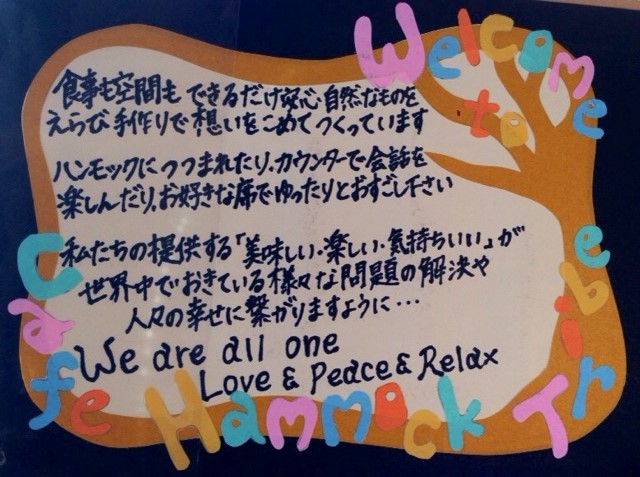 Welcome
to
食事も空間も できるだけ安心自然なものを
えらび手作りで想いをこめてつくっています
ハンモックにつつまれたり、カウンターで会話を
楽しんだり、お好きな席でゆったりとおすごし下さい
私たちの提供する「美味しい・楽しい・気持ちいい」が
世界中でおきている様々な問題の解決や
人々の幸せに繋がりますように・・・
We are all one
Love & Peace & Relax
Cafe Hammock Tribe